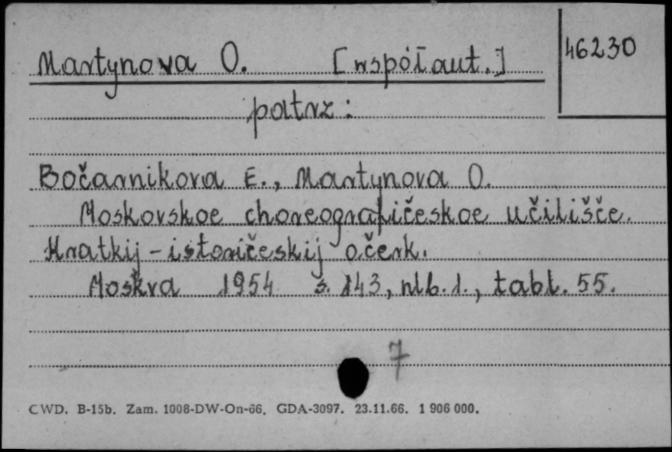 Martynova O. [współaut.]
46230
patrz:
Bočarnikova E., Martynova O.
Moskovskoe choreografičeskoe učilišče.
Kratkij-istoričeskij očerk.
Moskva 1954 s. 143, nlb. 1., tabl. 55.
7
CWD. B-15b. Zam. 1008-DW-On-66. GDA-3097. 23.11.66. 1 906 000.